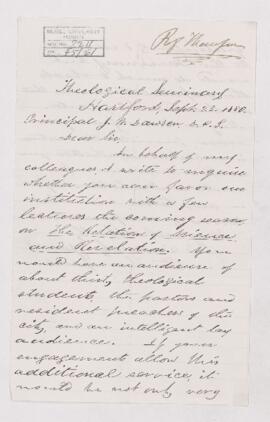 McGILL UNIVERSITY
ARCHIVES
ACC. NO. 927
REF. 45/61
Theological Seminary
Hartford, Sept. 22. 1880.
Principal J. W. Dawson L.L.D.
Dear Sir,
In behalf of my
colleagues I write to inquire
whether you can favor our
institution with a few
lectures the coming season
on the Relation of Science
and Revelation. You
would have an audience of
about thirty theological
students, the pastors and
resident preachers of the
city, and an intelligent lay
audience. If your
engagements allow this
additional service, it
would be not only very